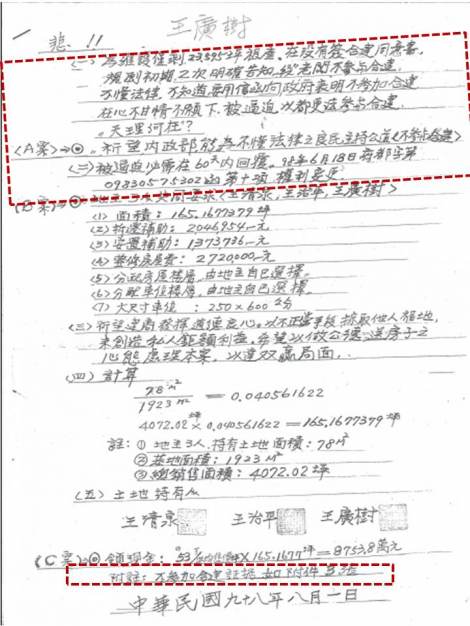 王廣樹
悲!!
規劃初期,2次明確告知,
不懂法律,不知道要用信函向政府表明不參加合建
在心不甘情不願下,被逼迫以都更法參與合建.
天理何在?
<A案>→⊙.祈望內政部能為不懂法律之良民主持公道<不參与合建>
(二)被逼迫必需在60天內回覆.98年6月18日府都字第
098305-75302函第十項 權利變更
<B案>→⊙ 地主3人共同要求<王清泉,王治平,王廣樹>
(1) 面積:165.1677379坪
(2)拆遷補助:2046954-元
(3)安置補助:1373736-元
(4)整修房屋費:2720000-元
(5)分配房屋樓層,由地主自己選擇。
(6)分配車位樓層,由地主自己選擇.
(7)大尺寸車位 :250×600公分
(三)祈望建商發揮道德良心。以不正當手段
來創造私人鉅額利益,希望以做公德、送房子之
心態處理本案,以達双贏局面.
(四) 計算
78M²/1923M² = 0.040561622
4072.02坪×0.040561622=165.1677379坪
註:①地主3人.持有土地面積:78M²
②基地面積:1923M²
③總銷售面積:4072.02坪
(五)土地持有人
王清泉 王治平 王廣樹
(C案)→⊙領現金: ×165.1677坪=8753.8萬元
附註:不參加合建証據.如附件
中華民國九十八年八月一日